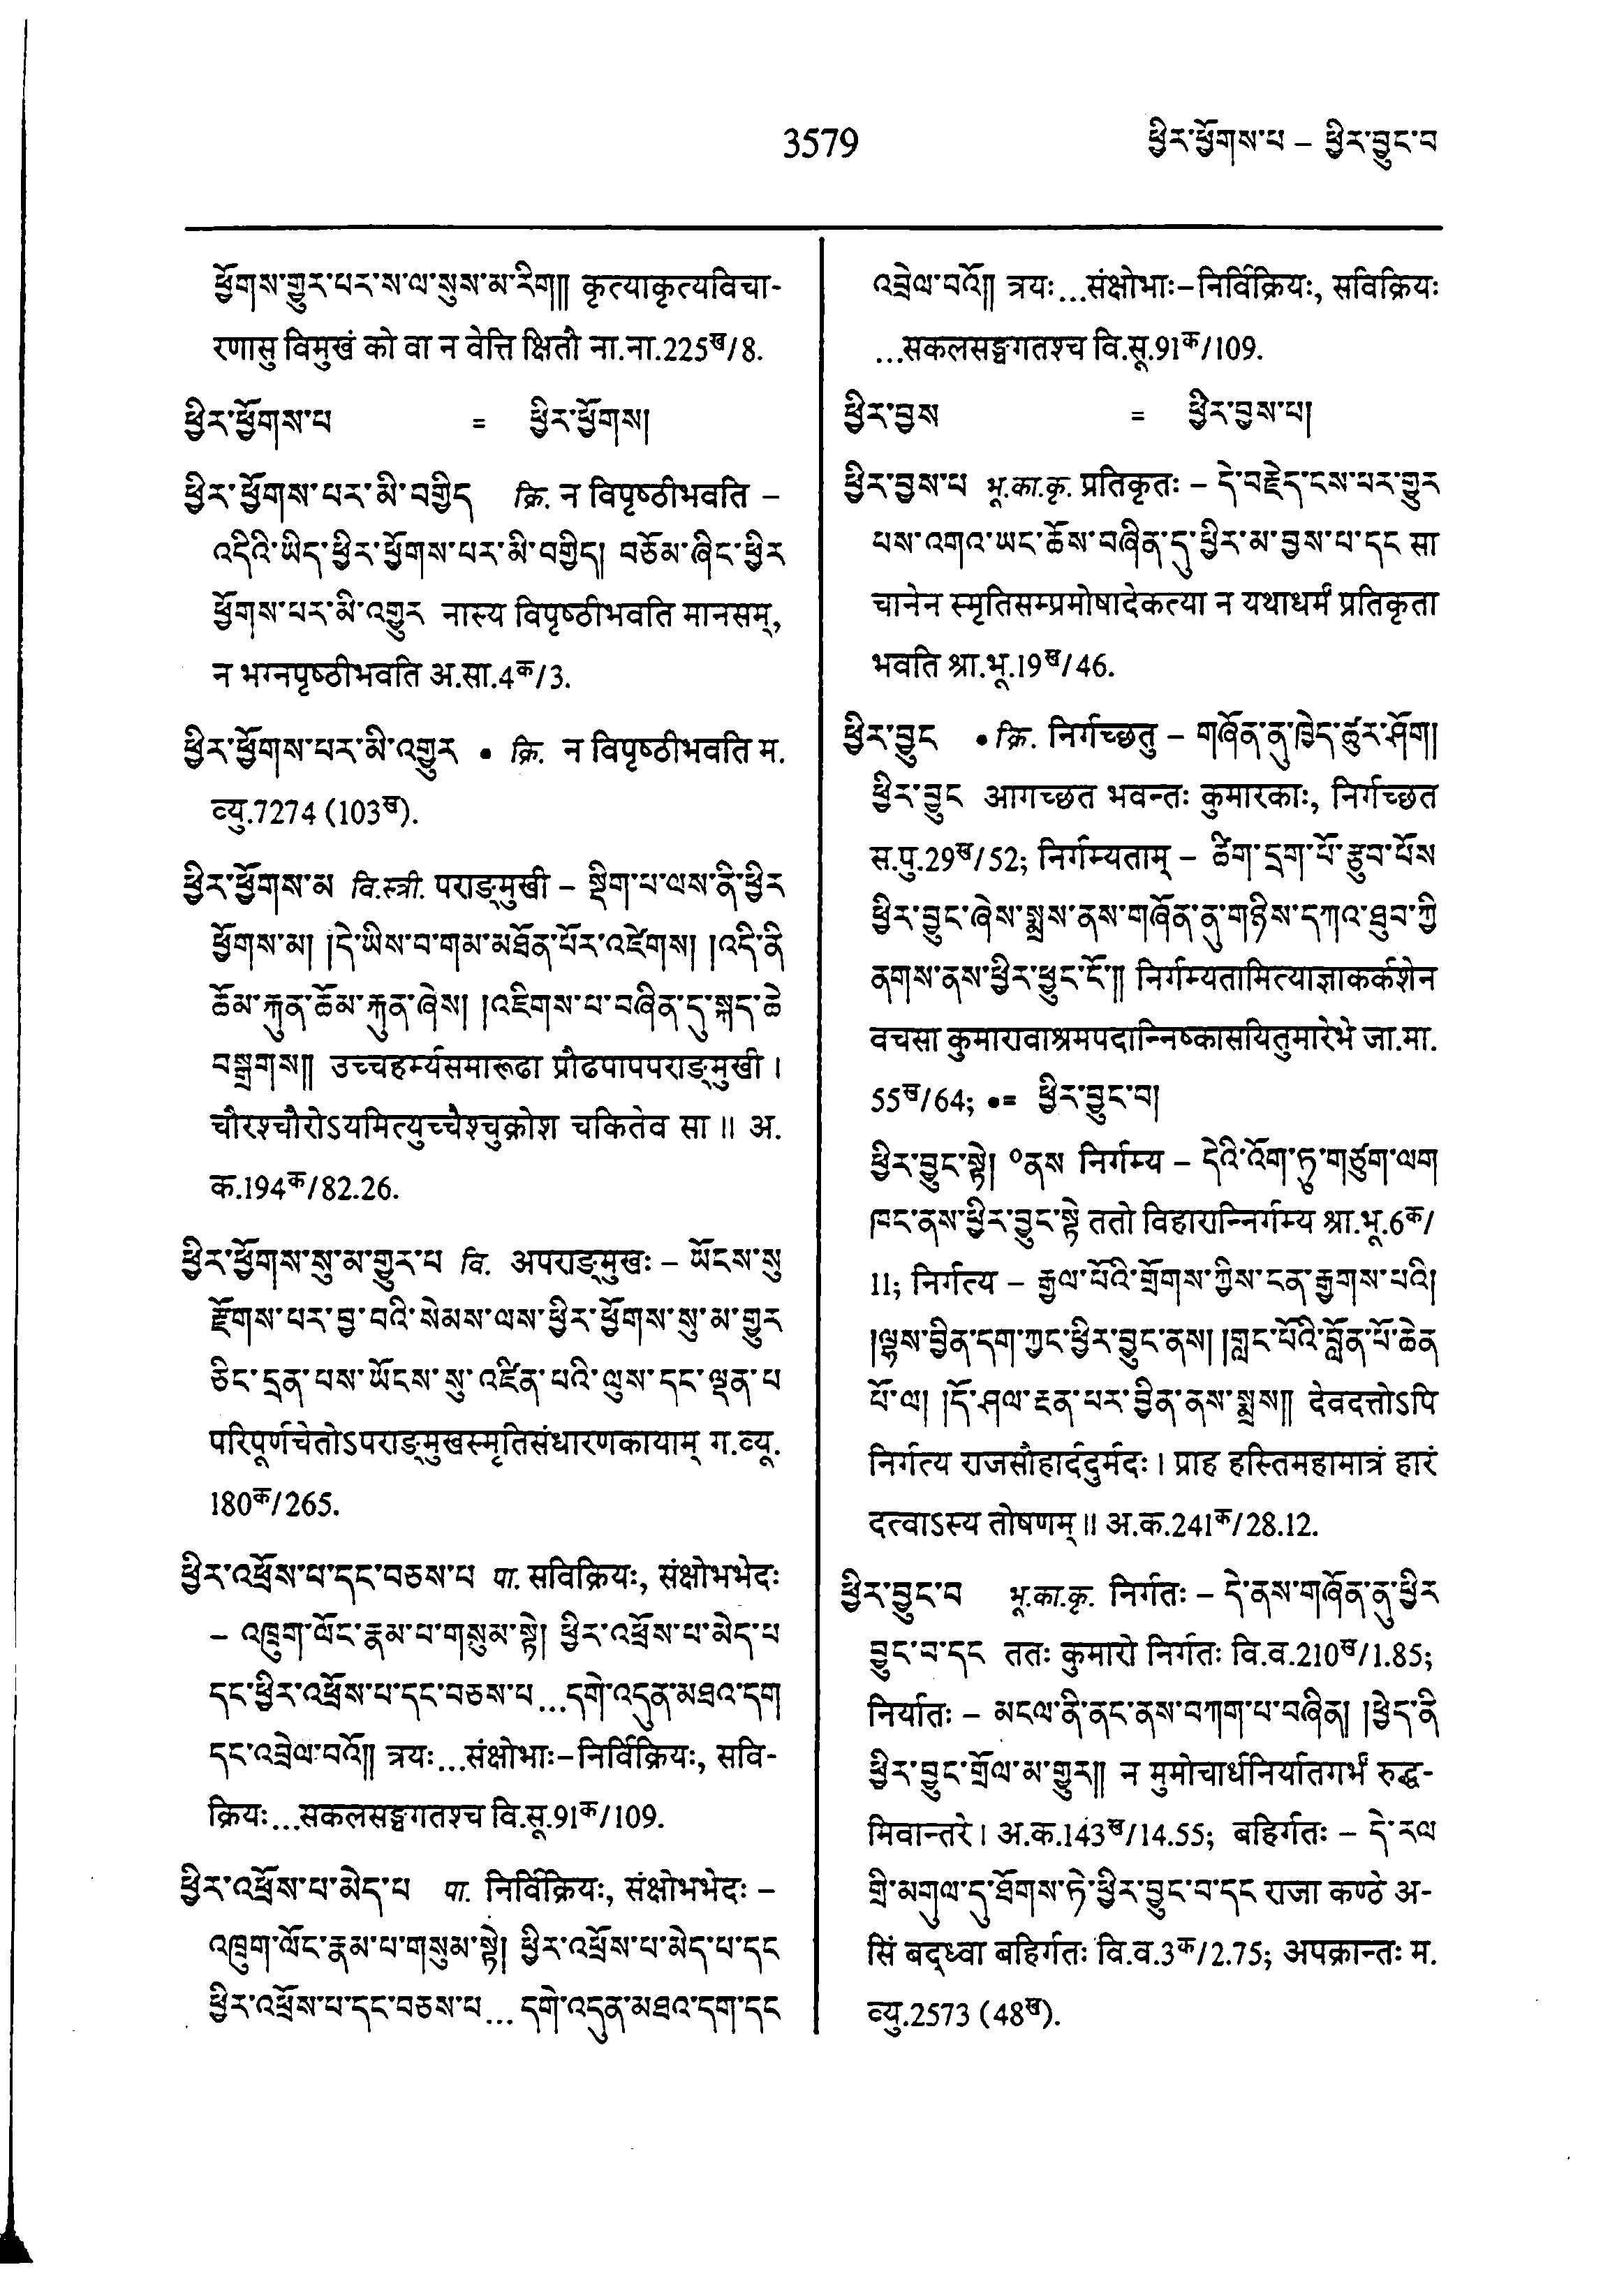 3579
ཕྱིར་ཕྱོགས་པ – ཕྱིར་བྱུང་བ
ཕྱོགས་གྱུར་པར་ས་ལ་སུས་མ་རིག༎ कृत्याकृत्यविचा-
रणासु विमुखं को वा न वेत्ति क्षितौ ना.ना.225ख/8.
ཕྱིར་ཕྱོགས་པ = ཕྱིར་ཕྱོགས།
ཕྱིར་ཕྱོགས་པར་མི་བགྱིད क्रि. न विपृष्ठीभवति –
འདིའི་ཡིད་ཕྱིར་ཕྱོགས་པར་མི་བགྱིད། བཅོམ་ཞིང་ཕྱིར
ཕྱོགས་པར་མི་འགྱུར नास्य विपृष्ठीभवति मानसम्,
न भग्नपृष्ठीभवति अ.सा.4क/3.
ཕྱིར་ཕྱོགས་པར་མི་འགྱུར • क्रि. न विपृष्ठीभवति म.
व्यु.7274 (103ख).
ཕྱིར་ཕྱོགས་མ वि.स्त्री. पराङ्मुखी – སྡིག་པ་ལས་ནི་ཕྱིར
ཕྱོགས་མ། །དེ་ཡིས་བ་གམ་མཐོན་པོར་འཛེགས། །འདི་ནི
ཆོམ་རྐུན་ཆོམ་རྐུན་ཞེས། །འཇིགས་པ་བཞིན་དུ་སྐད་ཆེ
བསྒྲགས༎ उच्चहर्म्यसमारूढा प्रौढपापपराङ्मुखी ।
चौरश्चौरोऽयमित्युच्चैश्चुक्रोश चकितेव सा ॥ अ.
क.194क/82.26.
ཕྱིར་ཕྱོགས་སུ་མ་གྱུར་པ वि. अपराङ्मुखः – ཡོངས་སུ
རྫོགས་པར་བྱ་བའི་སེམས་ལས་ཕྱིར་ཕྱོགས་སུ་མ་གྱུར
ཅིང་དྲན་པས་ཡོངས་སུ་འཛིན་པའི་ལུས་དང་ལྡན་པ
परिपूर्णचेतोऽपराङ्मुखस्मृतिसंधारणकायाम् ग.व्यू.
180क/265.
ཕྱིར་འཕྲོས་པ་དང་བཅས་པ पा. सविक्रियः, संक्षोभभेदः
– འཁྲུག་ལོང་རྣམ་པ་གསུམ་སྟེ། ཕྱིར་འཕྲོས་པ་མེད་པ
དང་ཕྱིར་འཕྲོས་པ་དང་བཅས་པ...དགེ་འདུན་མཐའ་དག
དང་འབྲེལ་བའོ༎ त्रयः...संक्षोभाः–निर्विक्रियः, सवि-
क्रियः...सकलसङ्घगतश्च वि.सू.91क/109.
ཕྱིར་འཕྲོས་པ་མེད་པ पा. निर्विक्रियः, संक्षोभभेदः –
འཁྲུག་ལོང་རྣམ་པ་གསུམ་སྟེ། ཕྱིར་འཕྲོས་པ་མེད་པ་དང
ཕྱིར་འཕྲོས་པ་དང་བཅས་པ... དགེ་འདུན་མཐའ་དག་དང
འབྲེལ་བའོ༎ त्रयः...संक्षोभाः–निर्विक्रियः, सविक्रियः
...सकलसङ्घगतश्च वि.सू.91क/109.
ཕྱིར་བྱས = ཕྱིར་བྱས་པ།
ཕྱིར་བྱས་པ भू.का.कृ. प्रतिकृतः – དེ་བརྗེད་ངས་པར་གྱུར
པས་འགའ་ཡང་ཆོས་བཞིན་དུ་ཕྱིར་མ་བྱས་པ་དང सा
चानेन स्मृतिसम्प्रमोषादेकत्या न यथाधर्मं प्रतिकृता
भवति श्रा.भू.19ख/46.
ཕྱིར་བྱུང • क्रि. निर्गच्छतु – གཞོན་ནུ་ཁྱེད་ཚུར་ཤོག།
ཕྱིར་བྱུང आगच्छत भवन्तः कुमारकाः, निर्गच्छत
स.पु.29ख/52; निर्गम्यताम् – ཚིག་དྲག་པོ་རྩུབ་པོས
ཕྱིར་བྱུང་ཞེས་སྨྲས་ནས་གཞོན་ནུ་གཉིས་དཀའ་ཐུབ་ཀྱི
ནགས་ནས་ཕྱིར་ཕྱུང་ངོ་༎ निर्गम्यतामित्याज्ञाकर्कशेन
वचसा कुमारावाश्रमपदान्निष्कासयितुमारेभे जा.मा.
55ख/64; •= ཕྱིར་བྱུང་བ།
ཕྱིར་བྱུང་སྟེ། ༠ནས निर्गम्य – དེའི་འོག་ཏུ་གཙུག་ལག
ཁང་ནས་ཕྱིར་བྱུང་སྟེ ततो विहारान्निर्गम्य श्रा.भू.6क/
11; निर्गत्य – རྒྱལ་པོའི་གྲོགས་ཀྱིས་ངན་རྒྱགས་པའི།
།ལྷས་བྱིན་དག་ཀྱང་ཕྱིར་བྱུང་ནས། །གླང་པོའི་བློན་པོ་ཆེན
པོ་ལ། །དོ་ཤལ་རྔན་པར་བྱིན་ནས་སྨྲས༎ देवदत्तोऽपि
निर्गत्य राजसौहार्ददुर्मदः । प्राह हस्तिमहामात्रं हारं
दत्वाऽस्य तोषणम् ॥ अ.क.241क/28.12.
ཕྱིར་བྱུང་བ भू.का.कृ. निर्गतः – དེ་ནས་གཞོན་ནུ་ཕྱིར
བྱུང་བ་དང ततः कुमारो निर्गतः वि.व.210ख/1.85;
निर्यातः – མངལ་ནི་ནང་ནས་བཀག་པ་བཞིན། །ཕྱེད་ནི
ཕྱིར་བྱུང་གྲོལ་མ་གྱུར༎ न मुमोचार्धनिर्यातगर्भं रुद्ध-
मिवान्तरे । अ.क.143ख/14.55; बहिर्गतः – དེ་རལ
གྲི་མགུལ་དུ་ཐོགས་ཏེ་ཕྱིར་བྱུང་བ་དང राजा कण्ठे अ-
सिं बद्ध्वा बहिर्गतः वि.व.3क/2.75; अपक्रान्तः म.
व्यु.2573 (48ख).